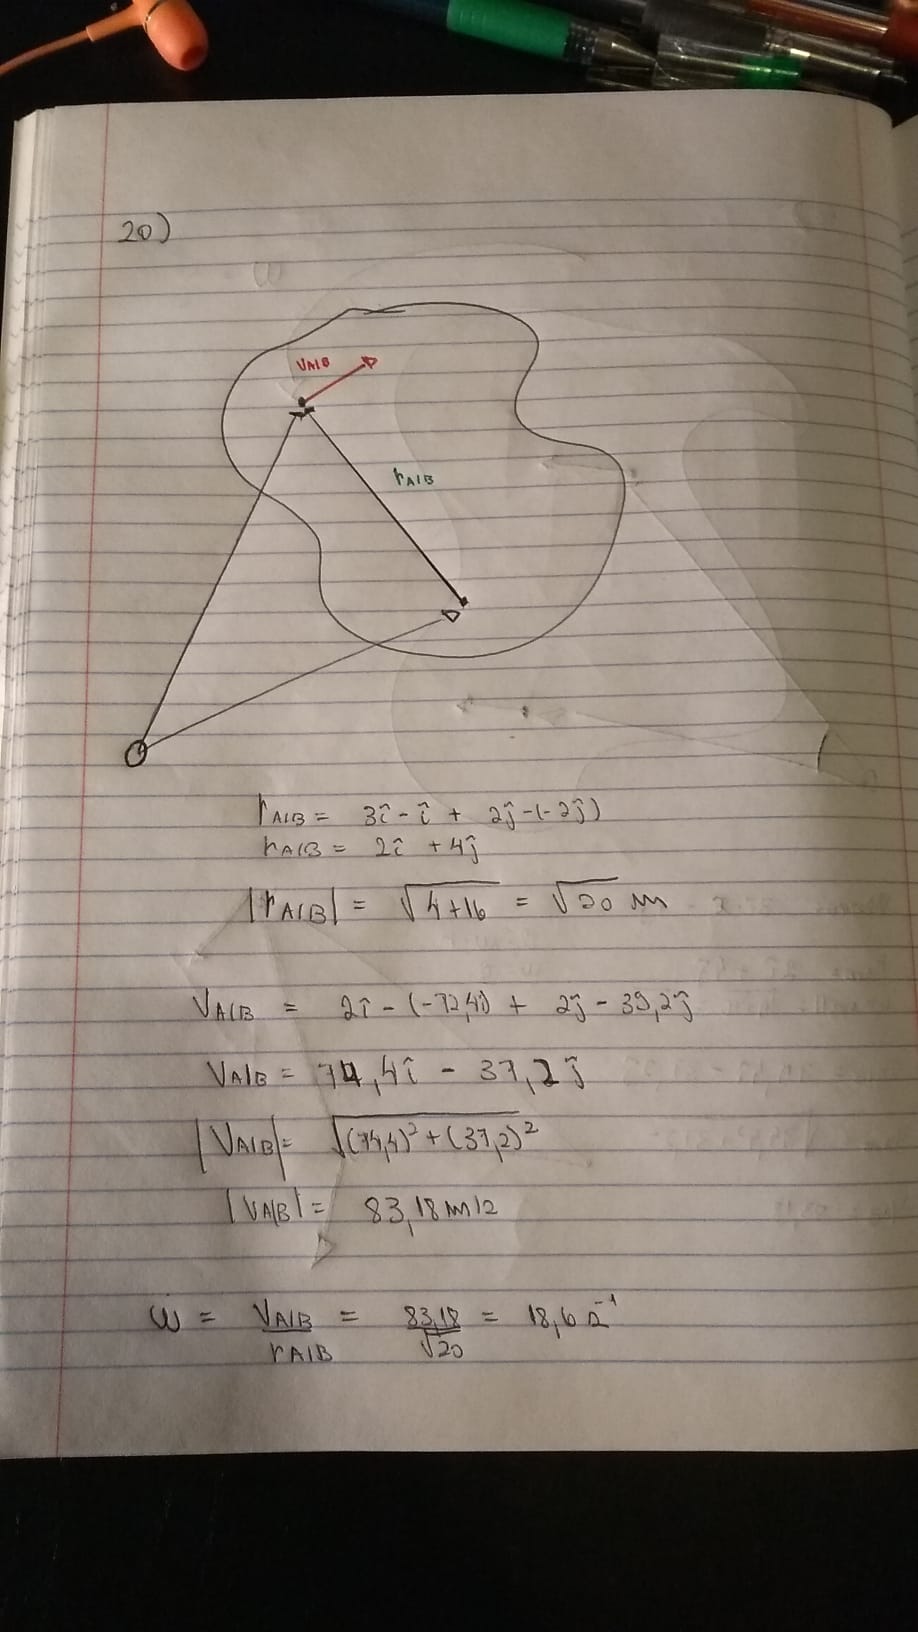 20)
VA/B
rA/B
rA/B = 3î - î + 2ĵ-(-2ĵ)
rA/B = 2î + 4ĵ
|rA/B| = √4+16 = √20 m
VA/B = 2î - (-72,4î) + 2ĵ - 39,2ĵ
VA/B = 74,4î - 37,2ĵ
|VA/B| = √(74,4)² + (37,2)²
|VA/B| = 83,18 m/s
ω = VA/B / rA/B = 83,18 / √20 = 18,6 s⁻¹